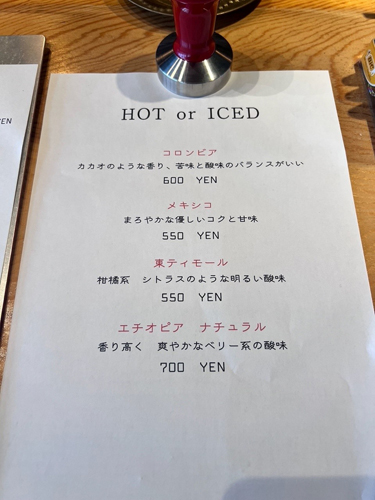 YEN
HOT or ICED
コロンビア
カカオのような香り、苦味と酸味のバランスがいい
600 YEN
メキシコ
まろやかな優しいコクと甘味
550 YEN
東ティモール
柑橘系 シトラスのような明るい酸味
550 YEN
エチオピア ナチュラル
香り高く 爽やかなベリー系の酸味
700 YEN